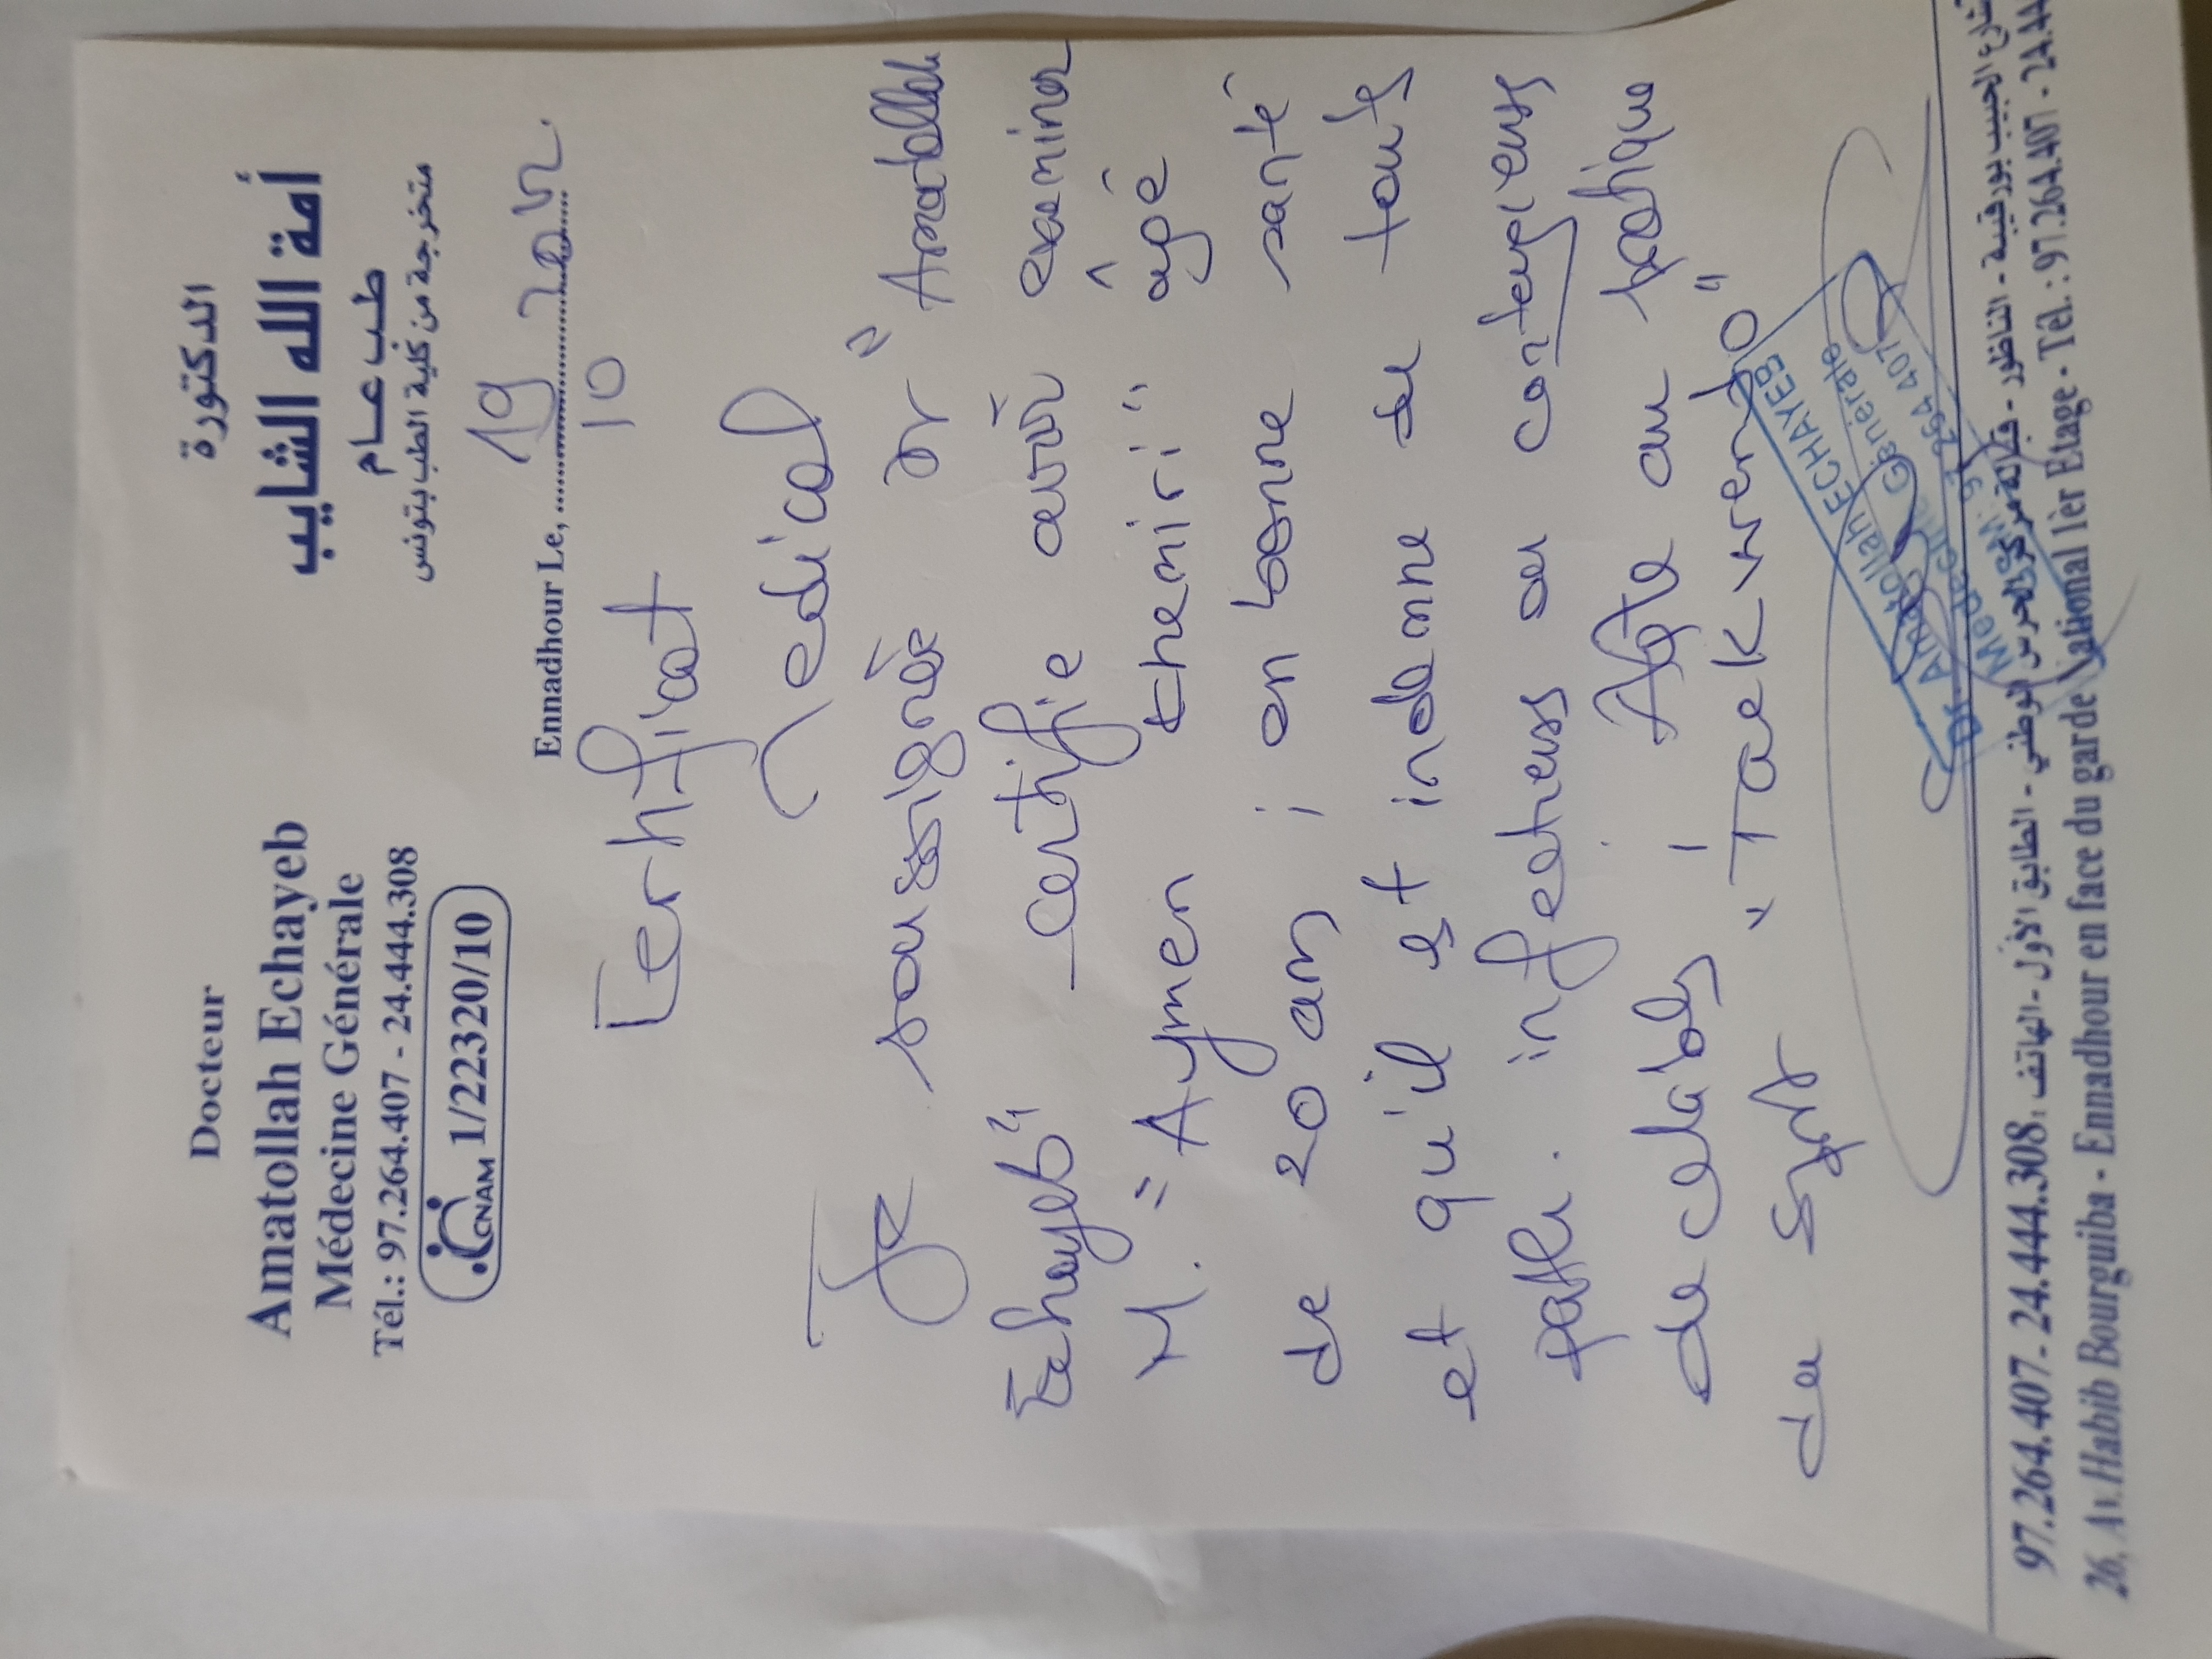 Docteur
Amatollah Echayeb
Médecine Générale
Tél.: 97.264.407 - 24.444.308
CNAM 1/22320/10
الدكتورة
أمة الله الشايب
طب عـــام
متخرجة من كلية الطب بتونس
Ennadhour Le, 19 10
Certificat
Médical
Je soussignée Dr " Amatollah
Echayeb" certifie avoir examiner
M. " Aymen Khemiri" âgé
de 20 ans ; en bonne santé
et qu'il est indemne de toute
path. infectieuse ou contagieuse
décelable ; Apte au pratique
du Sport " Taekwendo "
Dr. Amatollah ECHAYEB
Médecine Générale
97 264 407
97.264.407 - 24.444.308 : الطابق الأول - الهاتف
26, Av. Habib Bourguiba - Ennadhour en face du garde National 1èr Etage - Tél. : 97.264.407 - 24.44